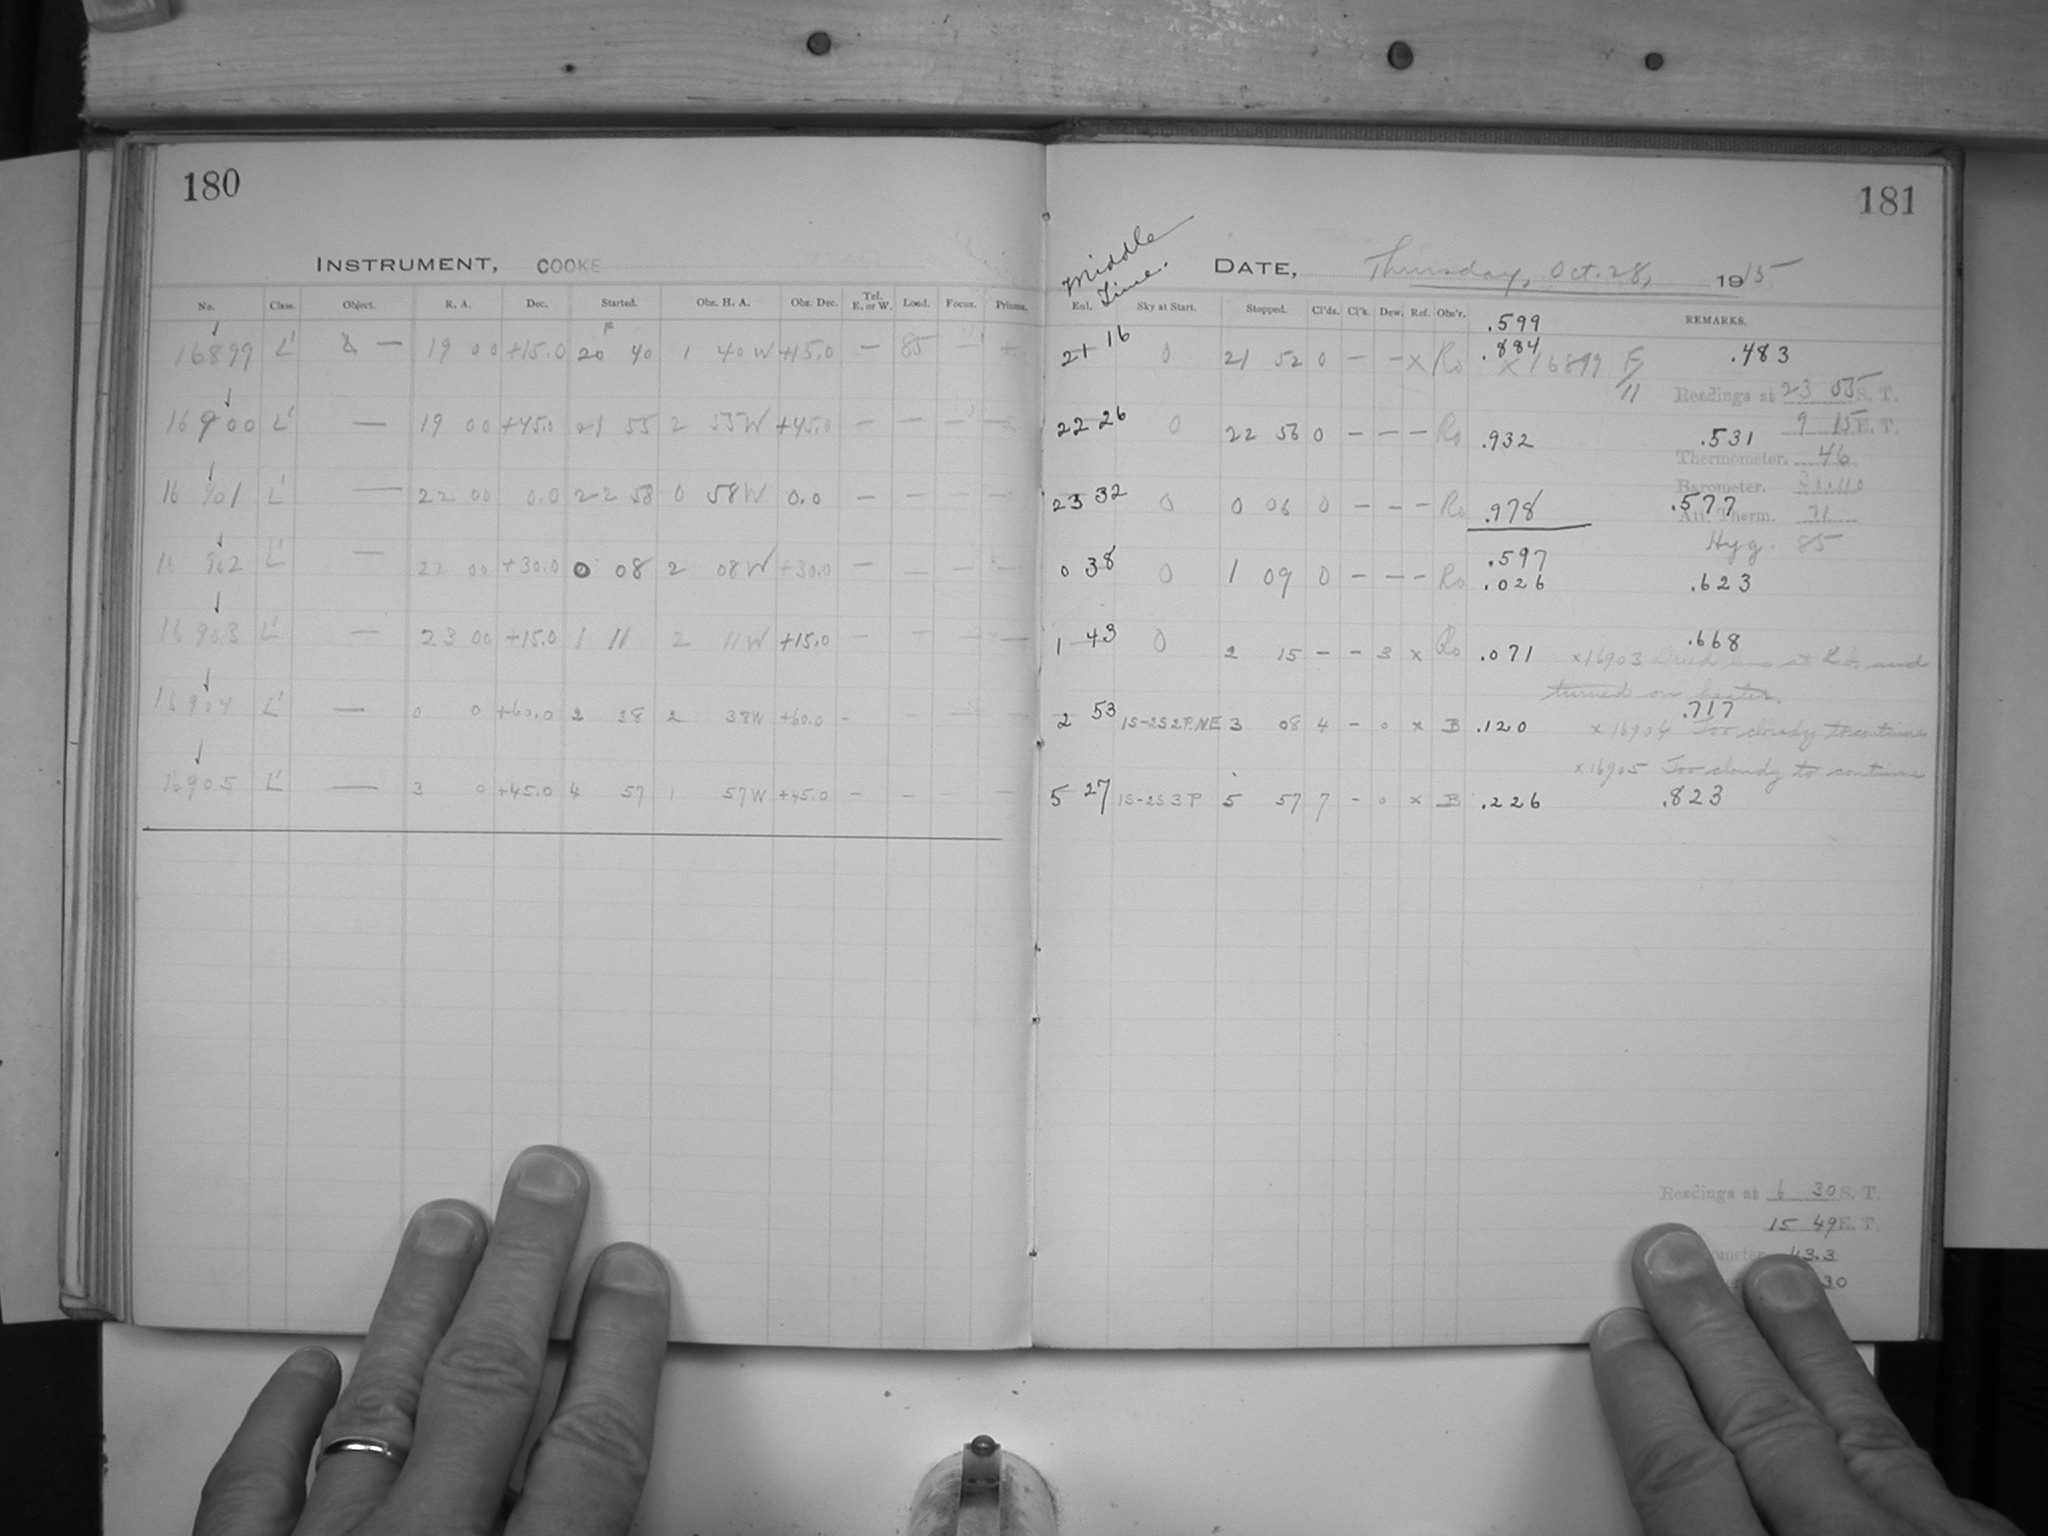 180
INSTRUMENT, COOKE
No. Class. Object. R. A. Dec. Started. Obs. H. A. Obs. Dec. Tel. E. or W. Load. Focus. Prisms.
16899 L' — 19 00 +15.0 20 40 1 40 W +15.0 — 85 —
16900 L' — 19 00 +45.0 21 55 2 55 W +45.0 — — — —
16901 L' — 22 00 0.0 22 58 0 58 W 0.0 — — — —
16902 L' — 22 00 +30.0 0 08 2 08 W +30.0 — — — —
16903 L' — 23 00 +15.0 1 11 2 11 W +15.0 — — — —
16904 L' — 0 0 +60.0 2 38 2 38W +60.0 - - - -
16905 L' — 3 0 +45.0 4 57 1 57W +45.0 - - - -
181
Middle Time.
DATE, Thursday, Oct. 28, 1915
Ent. Sky at Start. Stopped. Cl'ds. Cl'k. Dew. Ref. Obs'r. REMARKS.
.599
21 16 0 21 52 0 — — x Ro .884 .483
x 16899
Readings at 23 55 S. T.
9 15 E. T.
22 26 0 22 56 0 — — — Ro .932 .531
Thermometer. 46
Barometer. 30.110
23 32 0 0 06 0 — — — Ro .978 .577
Att. Therm. 71
Hyg. 85
.597
0 38 0 1 09 0 — — — Ro .026 .623
1 43 0 2 15 — — 3 x Ro .071 .668
x 16903 at Lab. and
turned on heater.
2 53 1S-2S 2P. NE 3 08 4 - 0 x B .120 .717
x 16904 Too cloudy to continue
x 16905 Too cloudy to continue
5 27 1S-2S 3P 5 57 7 - 0 x B .226 .823
Readings at 6 30 S. T.
15 49 E. T.
43.3
30